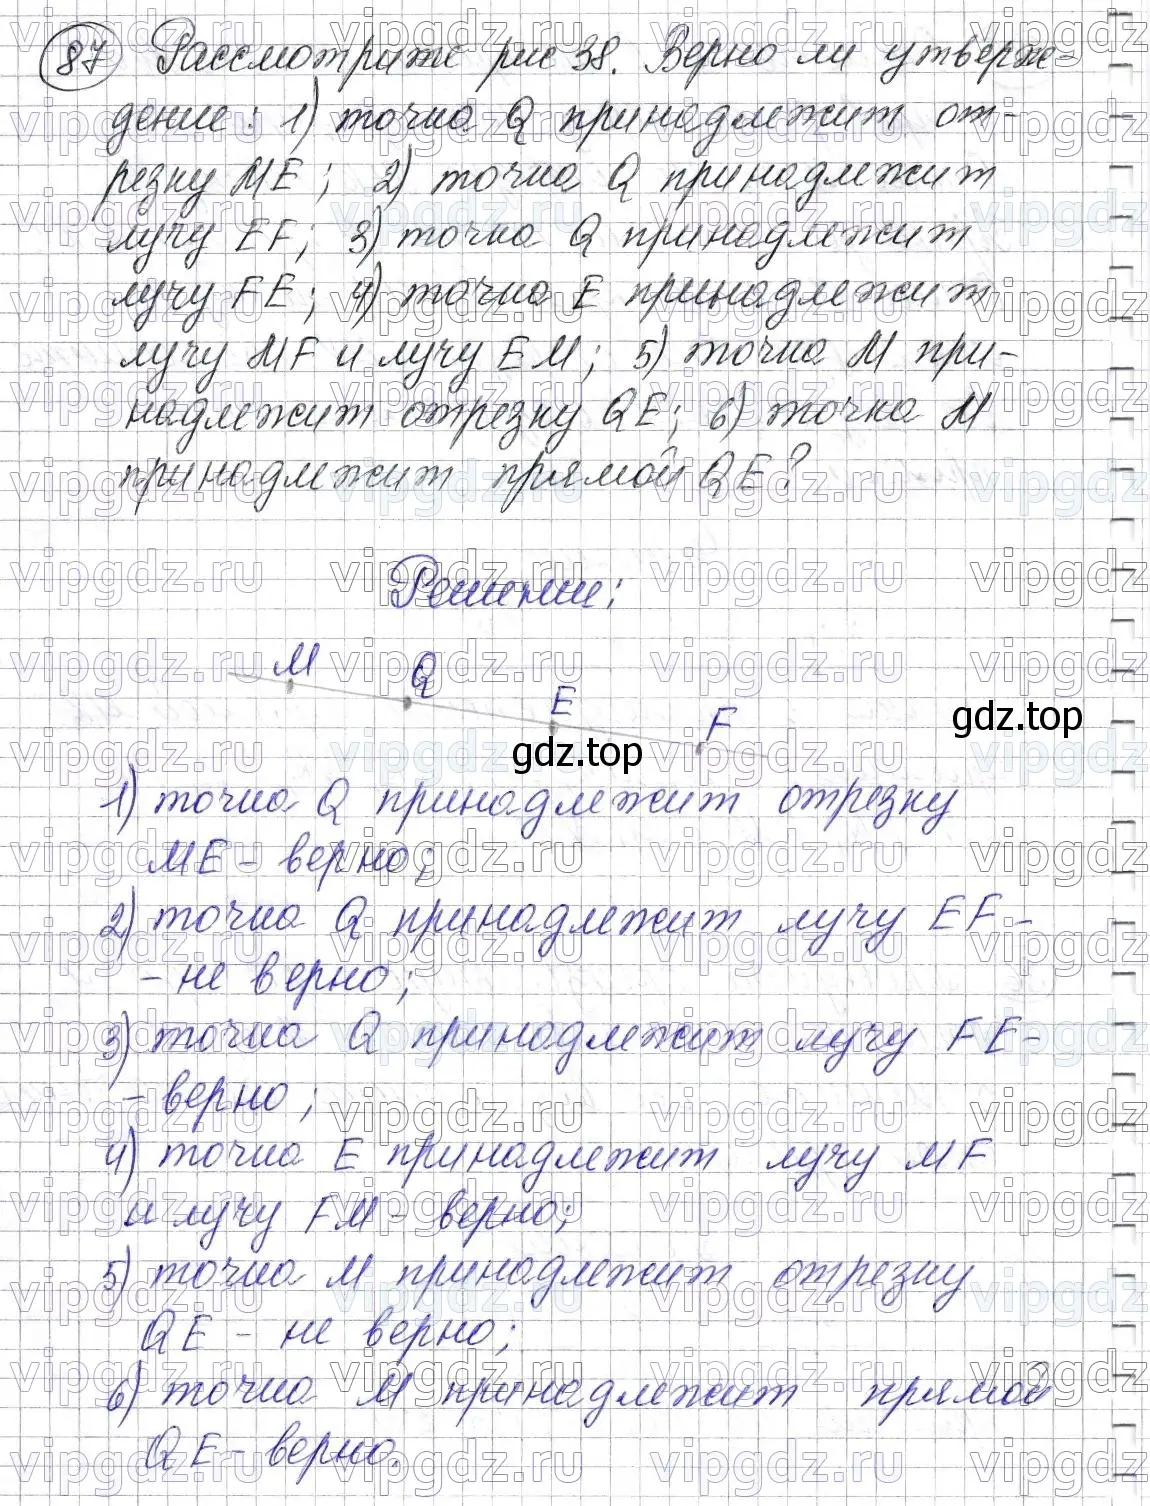 87 Рассмотрите рис 38. Верно ли утверж-
дение: 1) точка Q принадлежит от-
резку ME; 2) точка Q принадлежит
лучу EF; 3) точка Q принадлежит
лучу FE; 4) точка E принадлежит
лучу MF и лучу EM; 5) точка M при-
надлежит отрезку QE; 6) точка M
принадлежит прямой QE?
Решение:
M Q E F
gdz.top
gdz.top
1) точка Q принадлежит отрезку
ME - верно;
2) точка Q принадлежит лучу EF -
- не верно;
3) точка Q принадлежит лучу FE -
- верно;
4) точка E принадлежит лучу MF
и лучу FM - верно;
5) точка M принадлежит отрезку
QE - не верно;
6) точка M принадлежит прямой
QE - верно.
vipgdz.ru